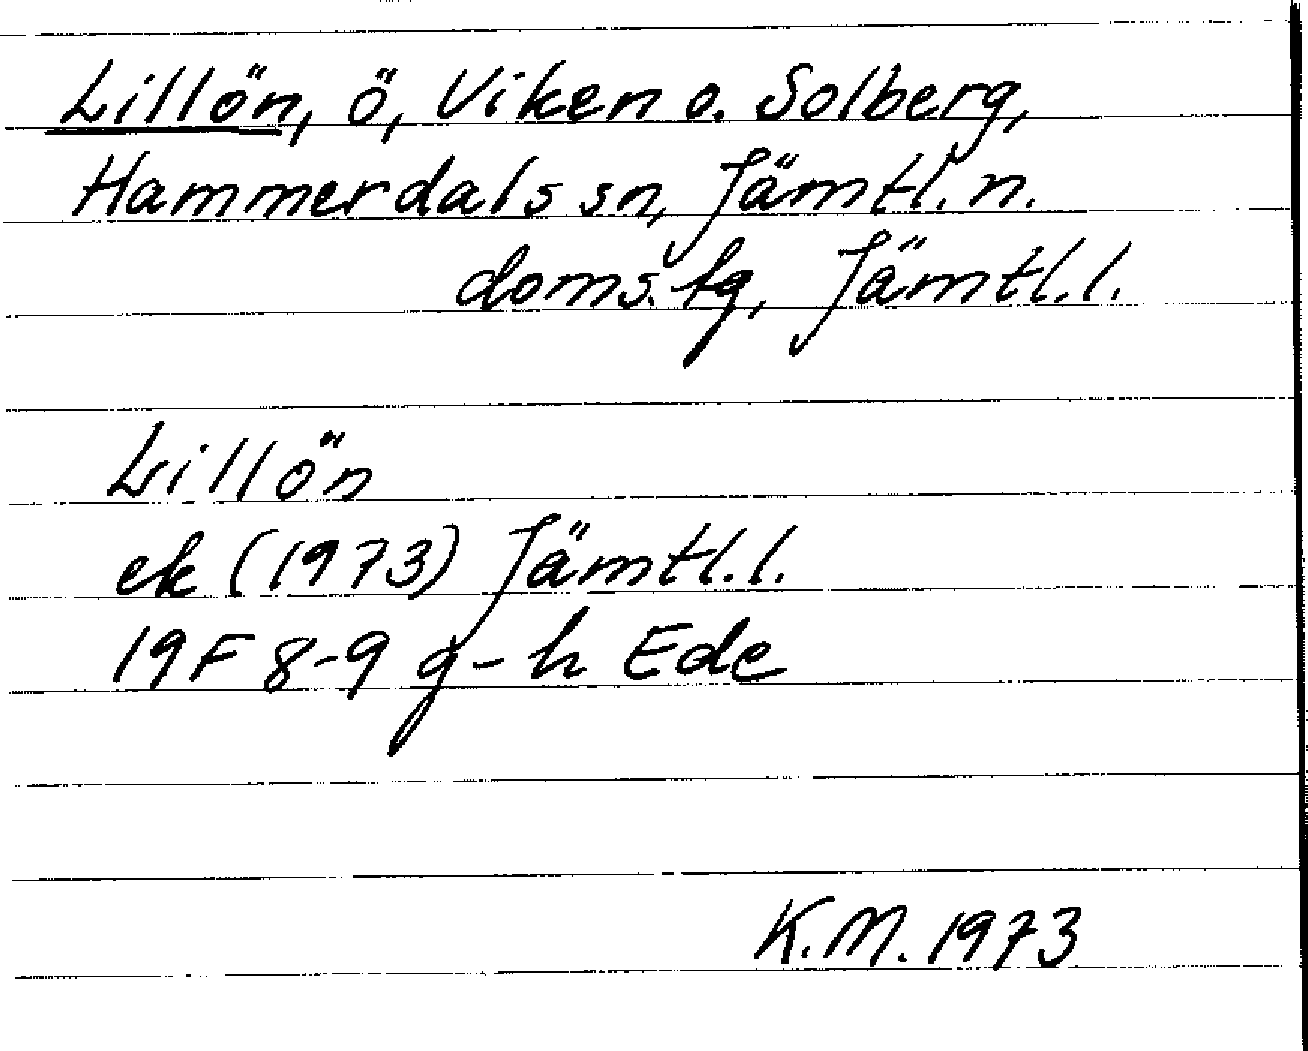 Lillön, ö, Viken o. Solberg,
Hammerdals sn, Jämtl. n.
doms. fg, Jämtl. l.
Lillön
ek (1973) Jämtl. l.
19F 8-9 g-h Ede
K.M. 1973